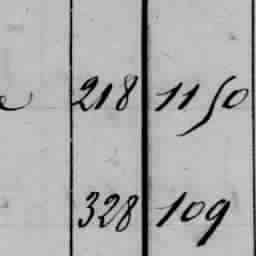 218 1150
328 109